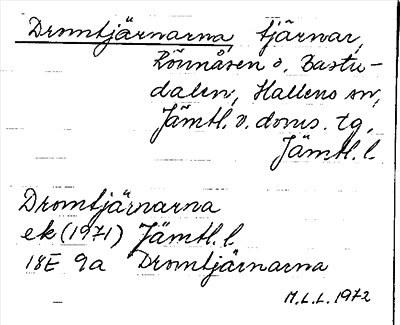 Dromtjärnarna, tjärnar,
Rönnåsen o. Bastu-
dalen, Hallens sn,
Jämtl. v. doms. tg,
Jämtl. l.
Dromtjärnarna
ek (1971) Jämtl. l
18E 9a Dromtjärnarna
M.L.L. 1972